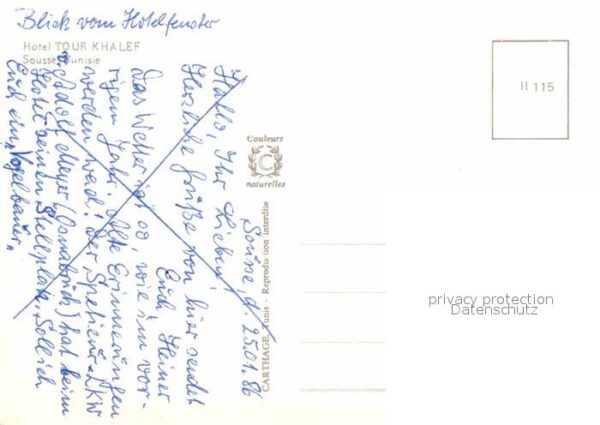 Blick vom Hotelfenster
Hotel TOUR KHALEF
Sousse Tunisie
II 115
Couleurs
C
naturelles
CARTHAGE Tunis - Reproduction interdite
privacy protection
Datenschutz
Sousse d. 25.01.86
Hallo, Ihr Lieben!
Herzliche Grüße von hier sendet
Euch Heiner
Das Wetter ist so, wie im vor-
rigen Jahr. Alte Erinnerungen
werden wach! Der Spetiens-LKW
v. Adolf Meyer (Osnabrück) hat beim
Hotel seinen Stellplatz. Soll ich
Euch ein "Vogelbauer"